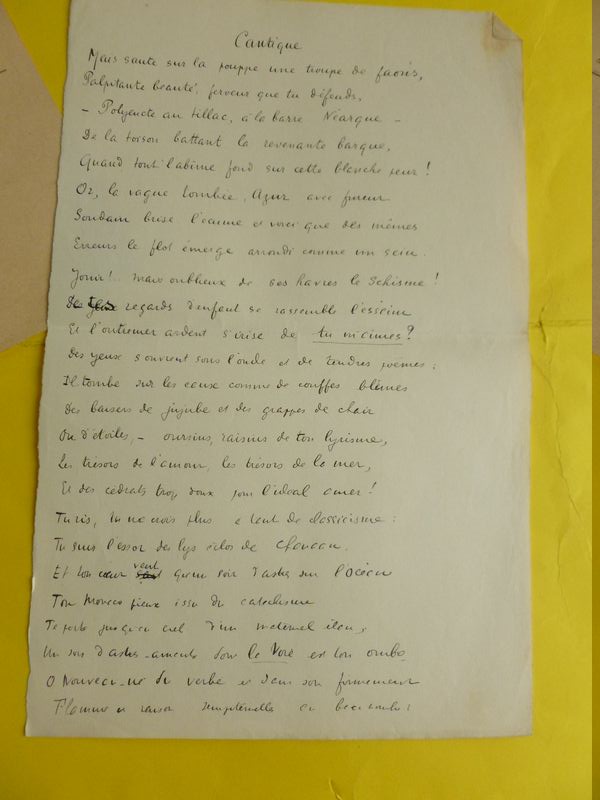 Cantique
Mais saute sur la pouppe une troupe de faons,
Palpitante beauté, ferveur que tu défends,
– Polyeucte au tillac, à la barre Néarque –
De la toison battant la revenante barque,
Quand tout l'abîme fond sur cette blanche peur !
Or, la vague tombée, Azur avec fureur
Soudain brise l'écume et voici que des mêmes
Erreurs le flot émerge arrondi comme un sein.
Jouir !.. mais oublieux de ses havres le Schisme !
regards d'enfant se rassemble l'essaim
Et l'outremer ardent s'irise de tu m'aimes ?
Des yeux s'ouvrent sous l'onde et de tendres poèmes ;
Il tombe sur les eaux comme de couffes blêmes
Des baisers de jujube et des grappes de chair
Ou d'étoiles, – oursins, raisins de ton lyrisme,
Les trésors de l'amour, les trésors de la mer,
Et des cédrats trop doux pour l'idéal amer !
Tu ris, tu ne crois plus à tant de classicisme :
Tu suis l'essor des lys éclos de
Et ton cœur veut qu'un soir d'astres sur l'Océan
Ton Monaco pieux issu du catéchisme
Te porte jusqu'au ciel d'un maternel élan ;
Un soir d'astres aimants dont la Voie est ton ombre
O Nouveau-né du verbe et dans son firmament
Flamme et raison sempiternelle